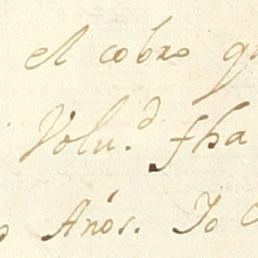 el cobro
Volu.d fha
Años. Jo